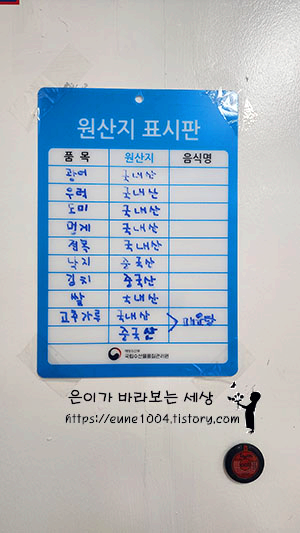 원산지 표시판
품 목 원산지 음식명
광어 국내산
우럭 국내산
도미 국내산
멍게 국내산
전복 국내산
낙지 중국산
김치 중국산
쌀 국내산
고추가루 국내산 > 매운탕
중국산
해양수산부
국립수산물품질관리원
은이가 바라보는 세상
https://eune1004.tistory.com